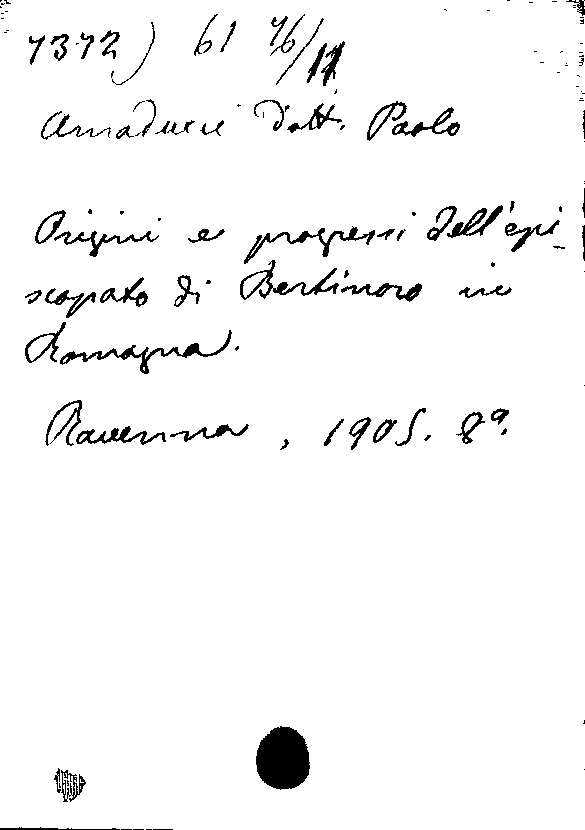 7372) 61 76/11
Amaducci Dott. Paolo
Origini e progressi dell'epi-
scopato di Bertinoro in
Romagna.
Ravenna, 1905. 8º.